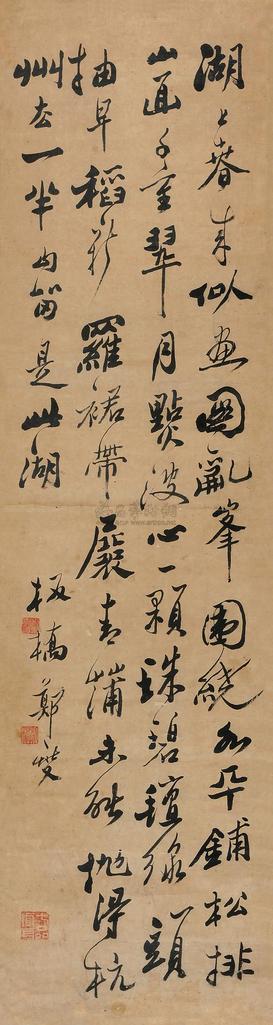 湖上春来似畫圖亂峯圍繞水平鋪松排
山面千重翠月點波心一顆珠碧毯線頭
抽早稻新羅裙帶展青蒲未能拋得杭
州去一半勾留是此湖
板橋鄭燮